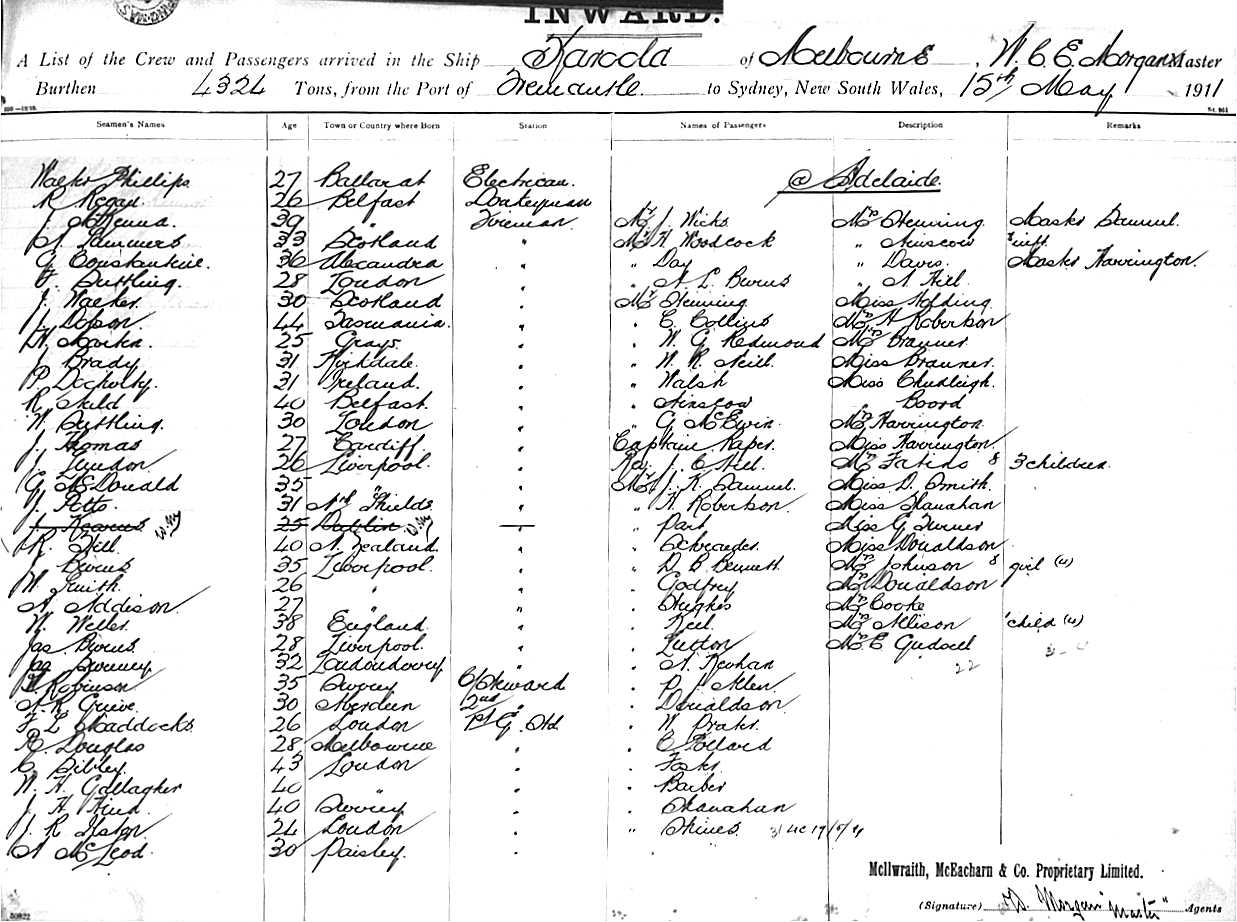 INWARD.
A List of the Crew and Passengers arrived in the Ship Karoola of Melbourne, W. C. E. Morgan Master
Burthen 4324 Tons, from the Port of Fremantle to Sydney, New South Wales, 15th May 1911
Seamen's Names Age Town or Country where Born Station Names of Passengers Description Remarks
Walter Phillips 27 Ballarat Electrican. @ Adelaide.
R Regan 26 Belfast
J. McKenna 39 " Fireman Mr J. Wicks Mrs Heming Master Samuel.
33 Scotland " Mr H Woodcock " Ainscow inft.
G Constantine. 36 Alexandra " " Day " Davis. Master Harrington.
28 London " " A L Burns " A Hill.
J. Walker. 30 Scotland " Mr Heming Miss
Dobson 44 Tasmania. " " C. Collins Mrs H Robertson
25 Grays " " W. G. Redmond Mrs Brauner
J Brady 31 Kirkdale. " " W. R. Neill. Miss Brauner.
P. Docherty. 31 Ireland. " " Walsh Miss Chudleigh.
R. 40 Belfast. " " Ainscow Boord
W. 30 London " " G McEwin. Mrs Harrington
J. Thomas 27 Cardiff " Captain Miss Harrington
J. 26 Liverpool. " Rev. J. C. Hill. Mrs & 3 children
G McDonald 35 " " Mr J. R. Samuel. Miss D. Smith.
Potts. 31 Nth Shields " " H. Robertson. Miss Shanahan
25 Dublin — " Park Miss G Turner
R. Hill. 40 N. Zealand. " " Schroeder. Miss Donaldson
J Burns 35 Liverpool. " " D. B. Bennett Mrs Johnson & girl (4)
W. Smith. 26 " " " Godfrey Mrs Donaldson
A. Addison 27 " " " Hughes Mrs Cooke
W. Weller. 38 England. " " Keel. Mrs Allison child (4)
Jas Burns 28 Liverpool. " " Lutton Mrs E
Jas Sweeney 32 Londonderry " " A. 22
Robinson 35 Surrey C/Steward " P J Allen.
A. R. Grieve. 30 Aberdeen 2nd " " Donaldson
F L Maddocks 26 London " W.
R. Douglas 28 Melbourne " " C Pollard
C. Sibley 43 London " "
W. H. Gallagher 40 " " " Barber
J. H. 40 Surrey " " Shanahan
J. R 24 London " "
A McLeod. 30 Paisley. "
McIlwraith, McEacharn & Co. Proprietary Limited.
(Signature) Morgan "Master" Agents
50822